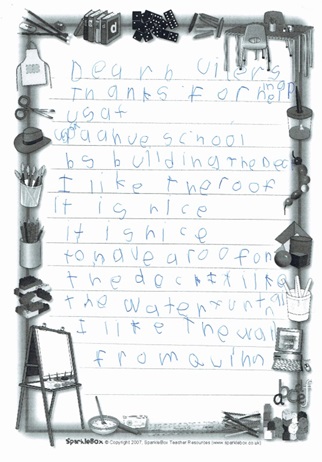 Dear b uilers
Thanks for
us at
school
bs building the Deck
I like the roof
It is nice
it is nice
to have a roof on
the deck I like
the water funtn
I like the wall
from Quinn
SparkleBox © Copyright 2007, SparkleBox Teacher Resources (www.sparklebox.co.uk)